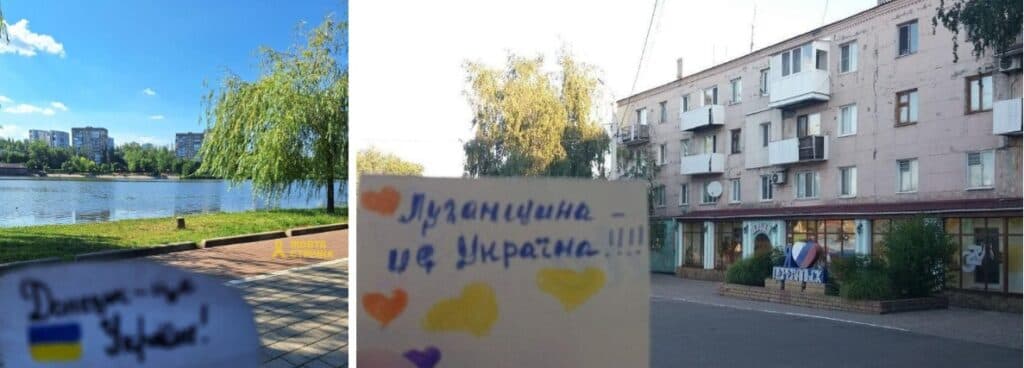 ЖОВТА
СТРІЧКА
Донецьк – це
Україна!
Луганщина –
це Україна!!!!